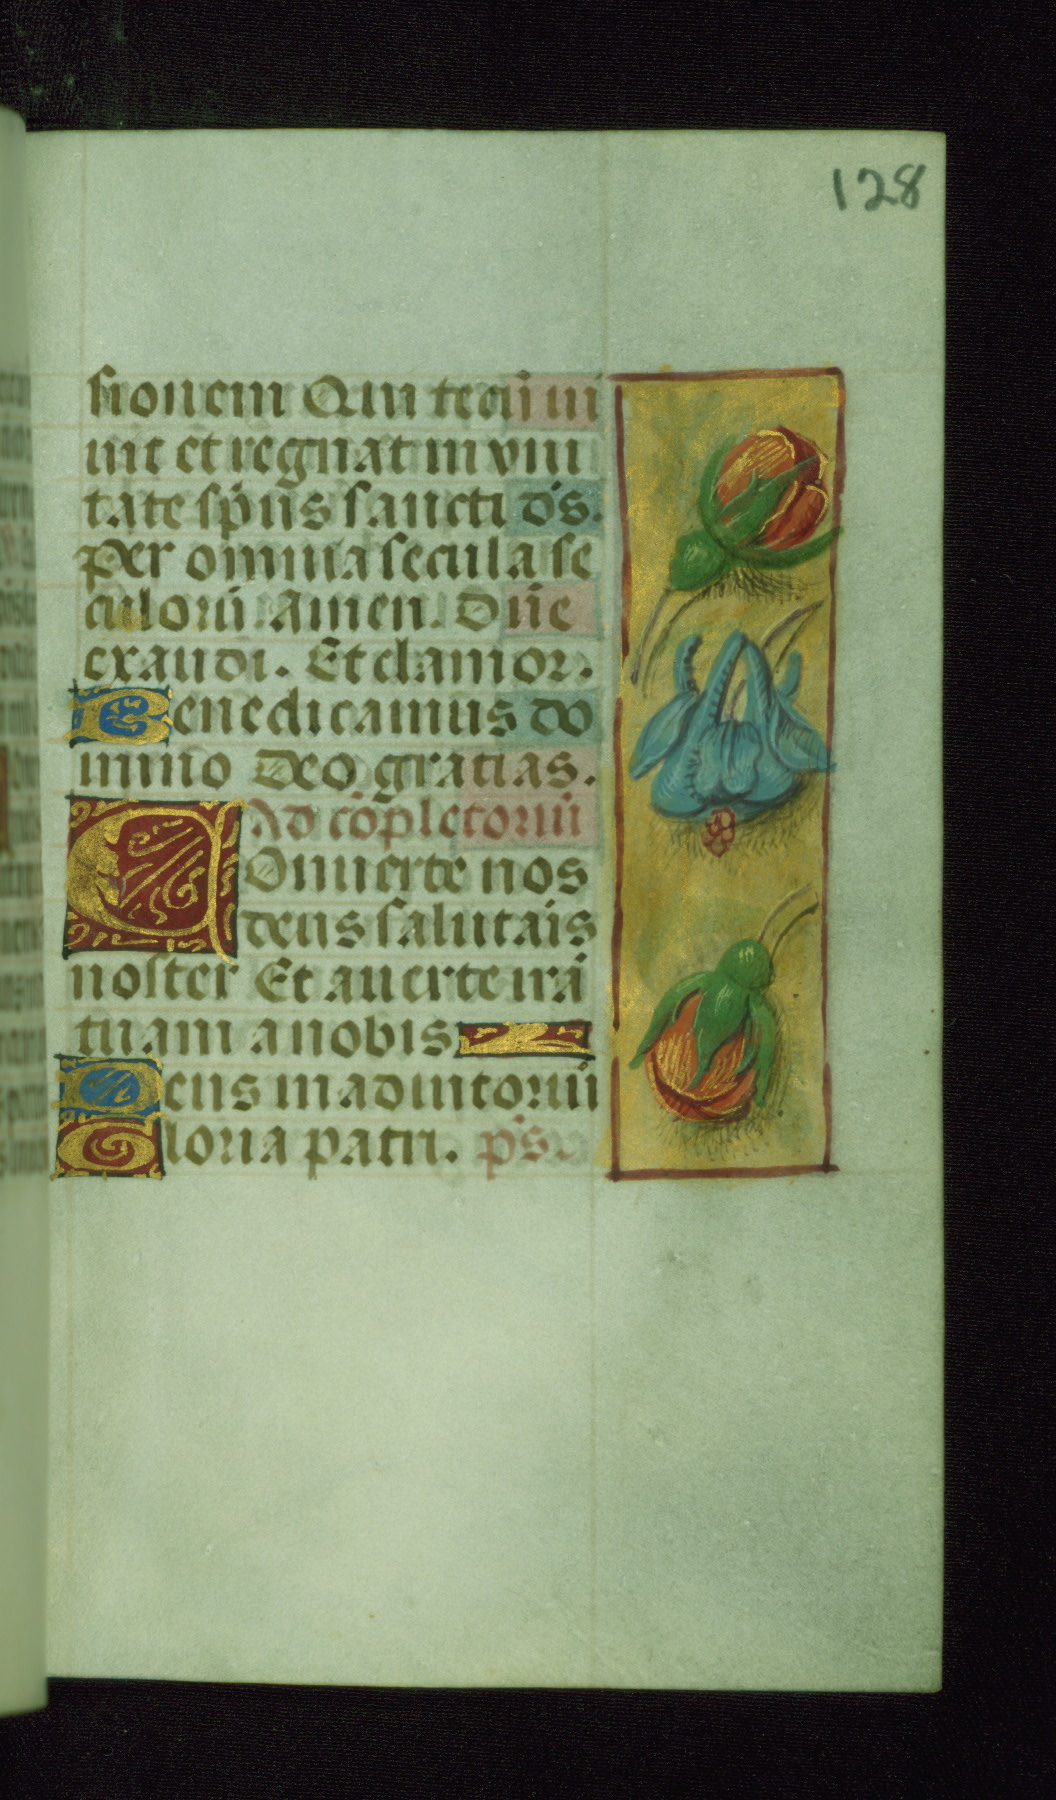 128
sionem Qui tecū ui
uit et regnat in vni
tate sp̄us sancti ds̄.
Per omnia secula se
culorū Amen. Dn̄e
exaudi. Et clamor.
Benedicamus do
mino Deo gratias.
Ad cōpletoriū
Conuerte nos
deus salutais
noster Et auerte irā
tuam a nobis
Deus in adiutoriū
Gloria patri. ps̄.